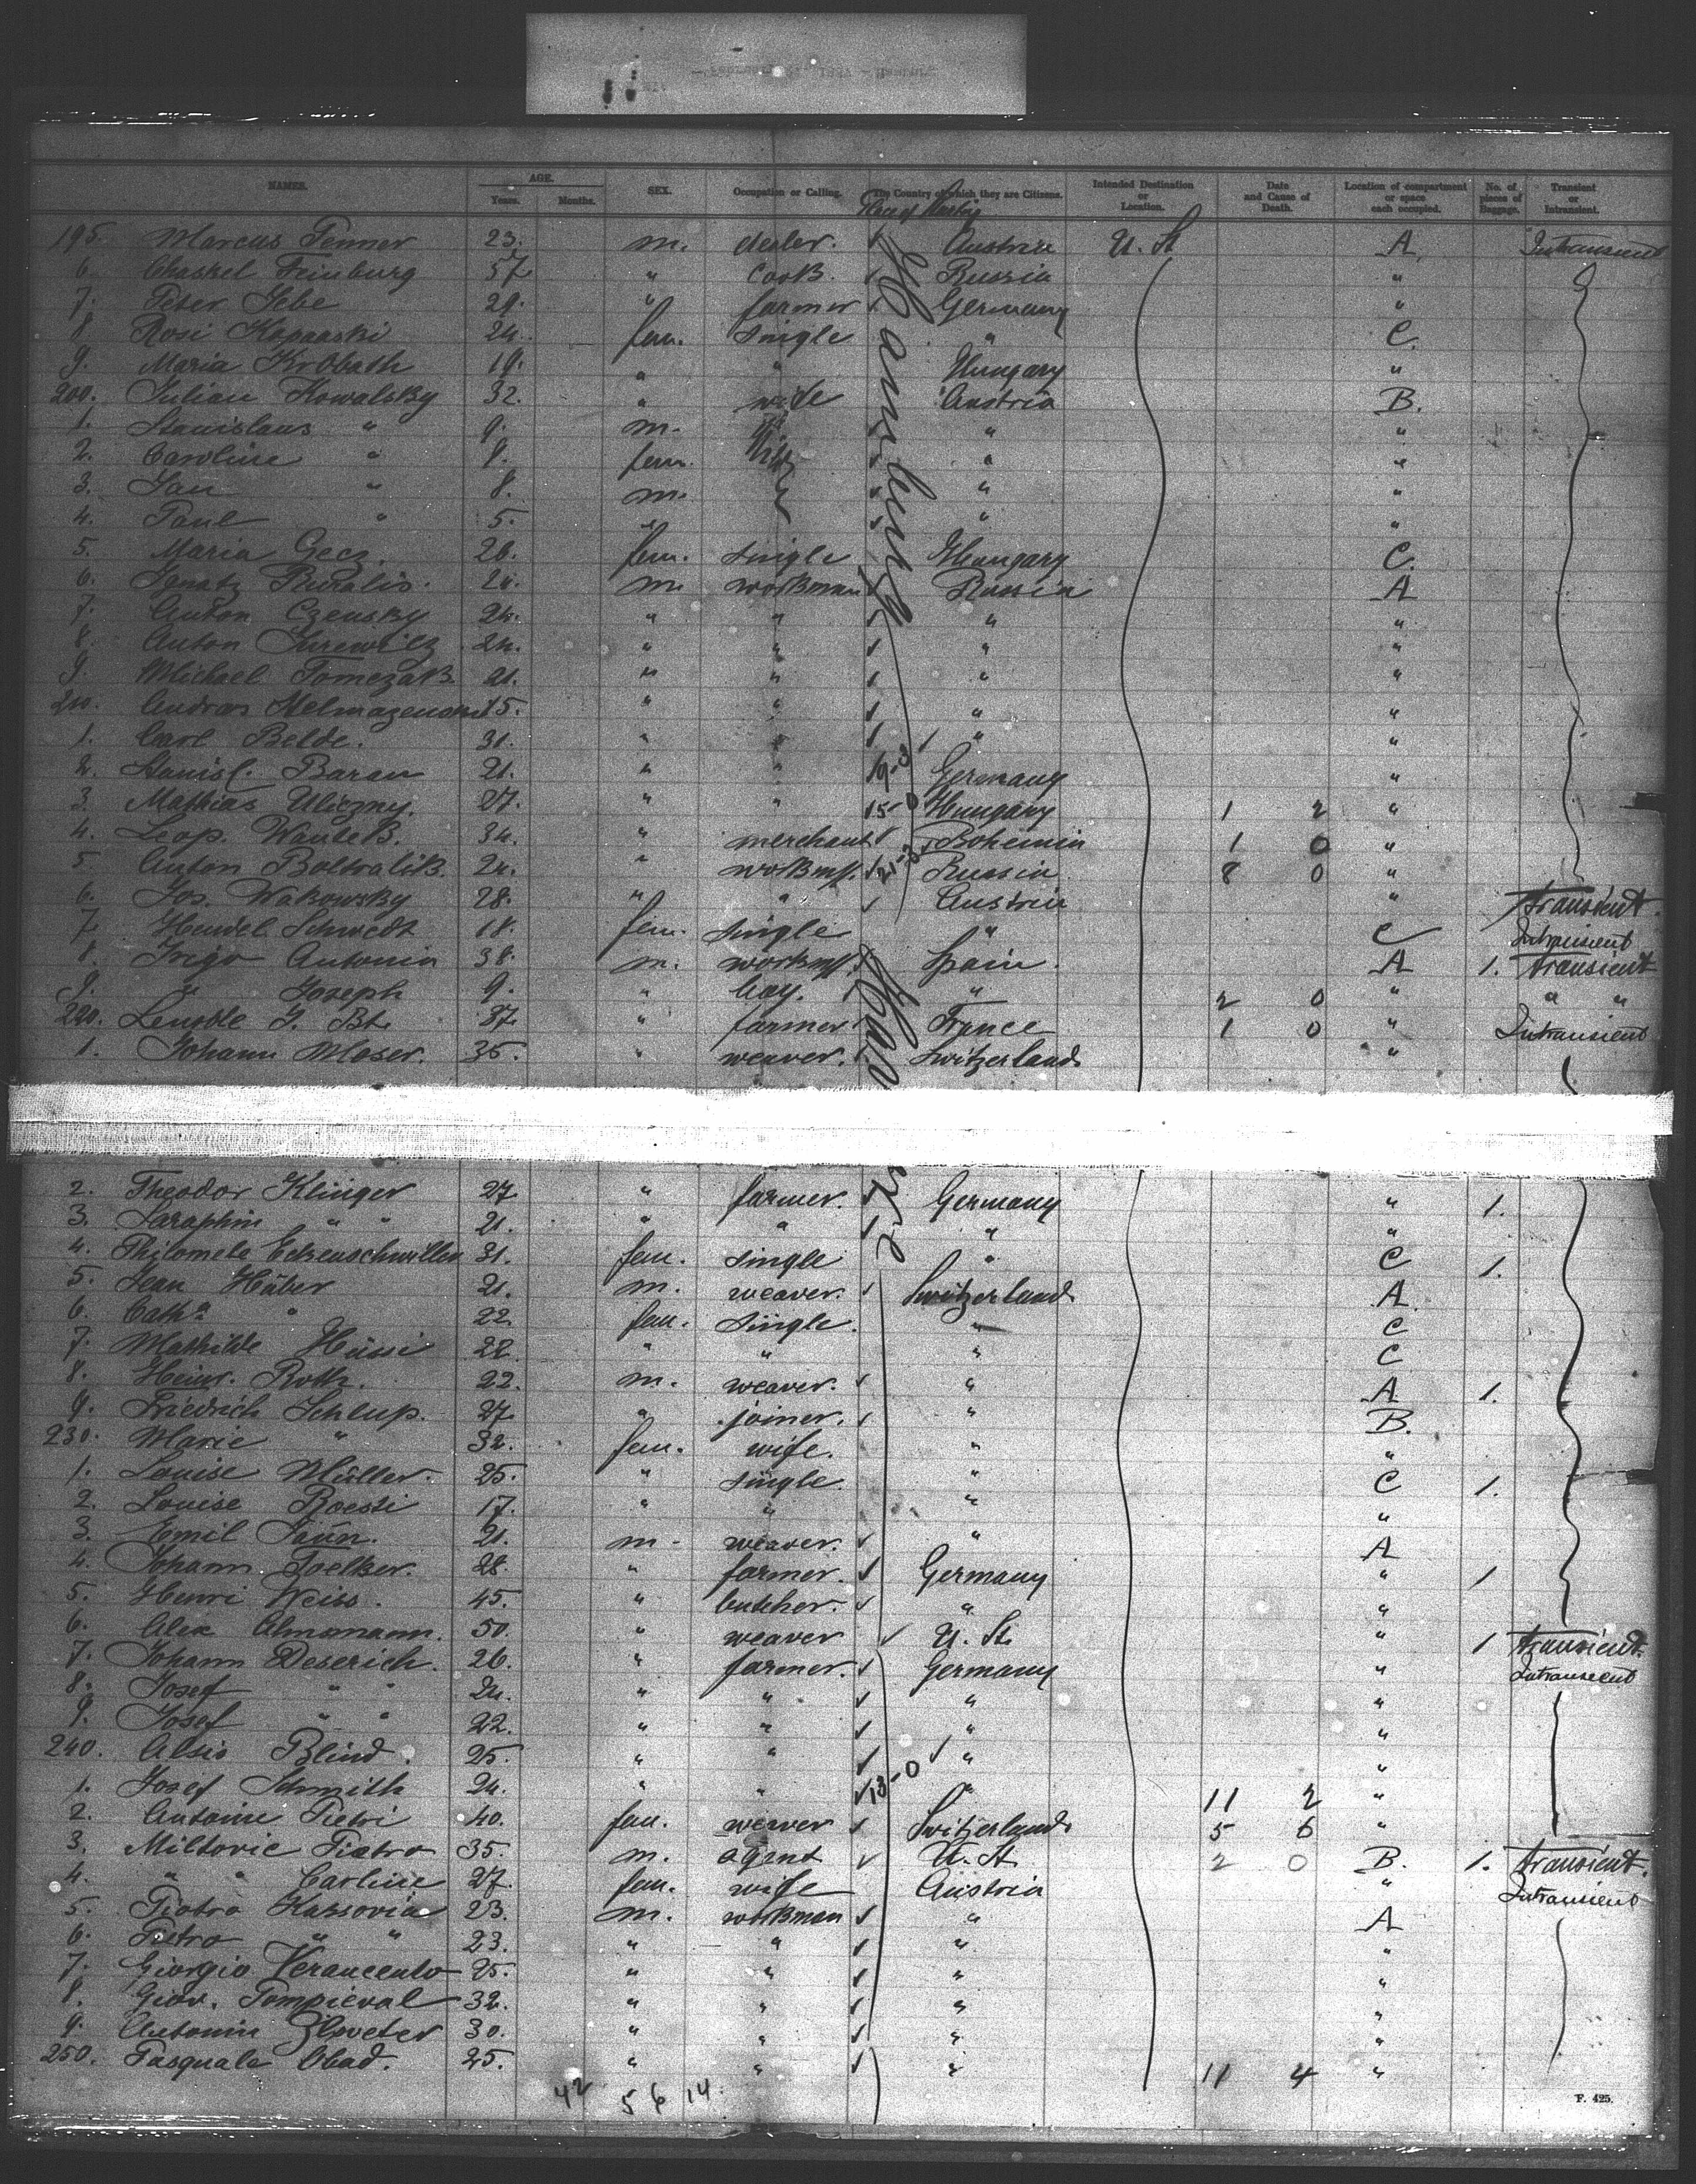 NAMES. AGE. Years. Months. SEX. Occupation or Calling. The Country of which they are Citizens. Intended Destination or Location. Date and Cause of Death. Location of compartment or space each occupied. No. of pieces of Baggage. Transient or Intransient.
195. Marcus Tenner 23. m. dealer. Austria U. St A. Intransient
6. Chaskel Feinburg 57 " Cook. Russia "
7. Peter 29. " farmer Germany "
8 Rosi Kopanski 24. fem. single " C.
9. Maria Krobath 19. " " Hungary "
200. Julian Kowalsky 32. " wife Austria B.
1. Stanislaus " 9. m. " "
2. Caroline " 8. fem. " "
3. Jan " 8. m. " "
4. Paul " 5. " " "
5. Maria Gecz. 26. fem. single Hungary C.
6. Ignatz 24. m. workman Russia A
7. Anton Czensky 24. " " " "
8. Anton Jurewitz 24. " " " "
9. Michael Tomczak 21. " " " "
210. Andras 15. " " " "
1. Carl Belde. 31. " " " "
2. Stanisl. Baran 21. " " 19-3 Germany "
3. Mathias Uliczny. 27. " " 15-0 Hungary 1 2 "
4. Leop. 34. " merchant Bohemia 1 0 "
5 Anton 24. " workm. 21-3 Russia 8 0 "
6. Jos. Wakowsky 28. " " Austria " transient.
7. Hendel Schwedt 18. fem. single " C Intransient
8. Trigo Antonin 38. m. workm. Spain. A 1. transient
9. " Joseph 9. " boy. " 2 0 " " "
220. J. Bt. 37. " farmer France 1 0 " Intransient
1. Johann Moser. 35. " weaver. Switzerland "
2. Theodor Klinger 27 " farmer. Germany " 1.
3. Saraphin " " 21. " " " "
4. Philomele 31. fem. single " C 1.
5. Jean Häber 21. m. weaver. Switzerland A.
6. Cath.a " 22. fem. single. " C
7. Mathilde Hüssi 22. " " " C
8. Heinr. Roth. 22. m. weaver. " A 1.
9. Friedrich Schlup. 27. " joiner. " B.
230. Marie " 32. fem. wife. " "
1. Louise Müller. 25. " single. " C 1.
2. Louise Roesti 17. " " " "
3. Emil 21. m. weaver. " A
4. Johann Soelker. 28. " farmer. Germany " 1
5. Henri Weiss. 45. " butcher. " "
6. Alex 50. " weaver U. St. " 1 transient.
7. Johann Deserich. 26. " farmer. Germany " Intransient
8. Josef " " 24. " " " "
9. Josef " " 22. " " " "
240. Alsis Blind. 25. " " " "
1. Josef Schmith 24. " " 13-0 " 11 2 "
2. Antoine Pietri 40. fem. weaver Switzerland. 5 6 "
3. Miltovic Pietro 35. m. agent U. St. 2 0 B. 1. transient.
4. " " Carline 27. fem. wife Austria " Intransient
5. Piotro Kassovia 23. m. workman " A
6. Pietro " " 23. " " " "
7. Giorgio 25. " " " "
8. Giov. 32. " " " "
9. Antonin 30. " " " "
250. Pasquale Obad. 25. " " " 11 4 "
42 5 6 14.
F. 425.